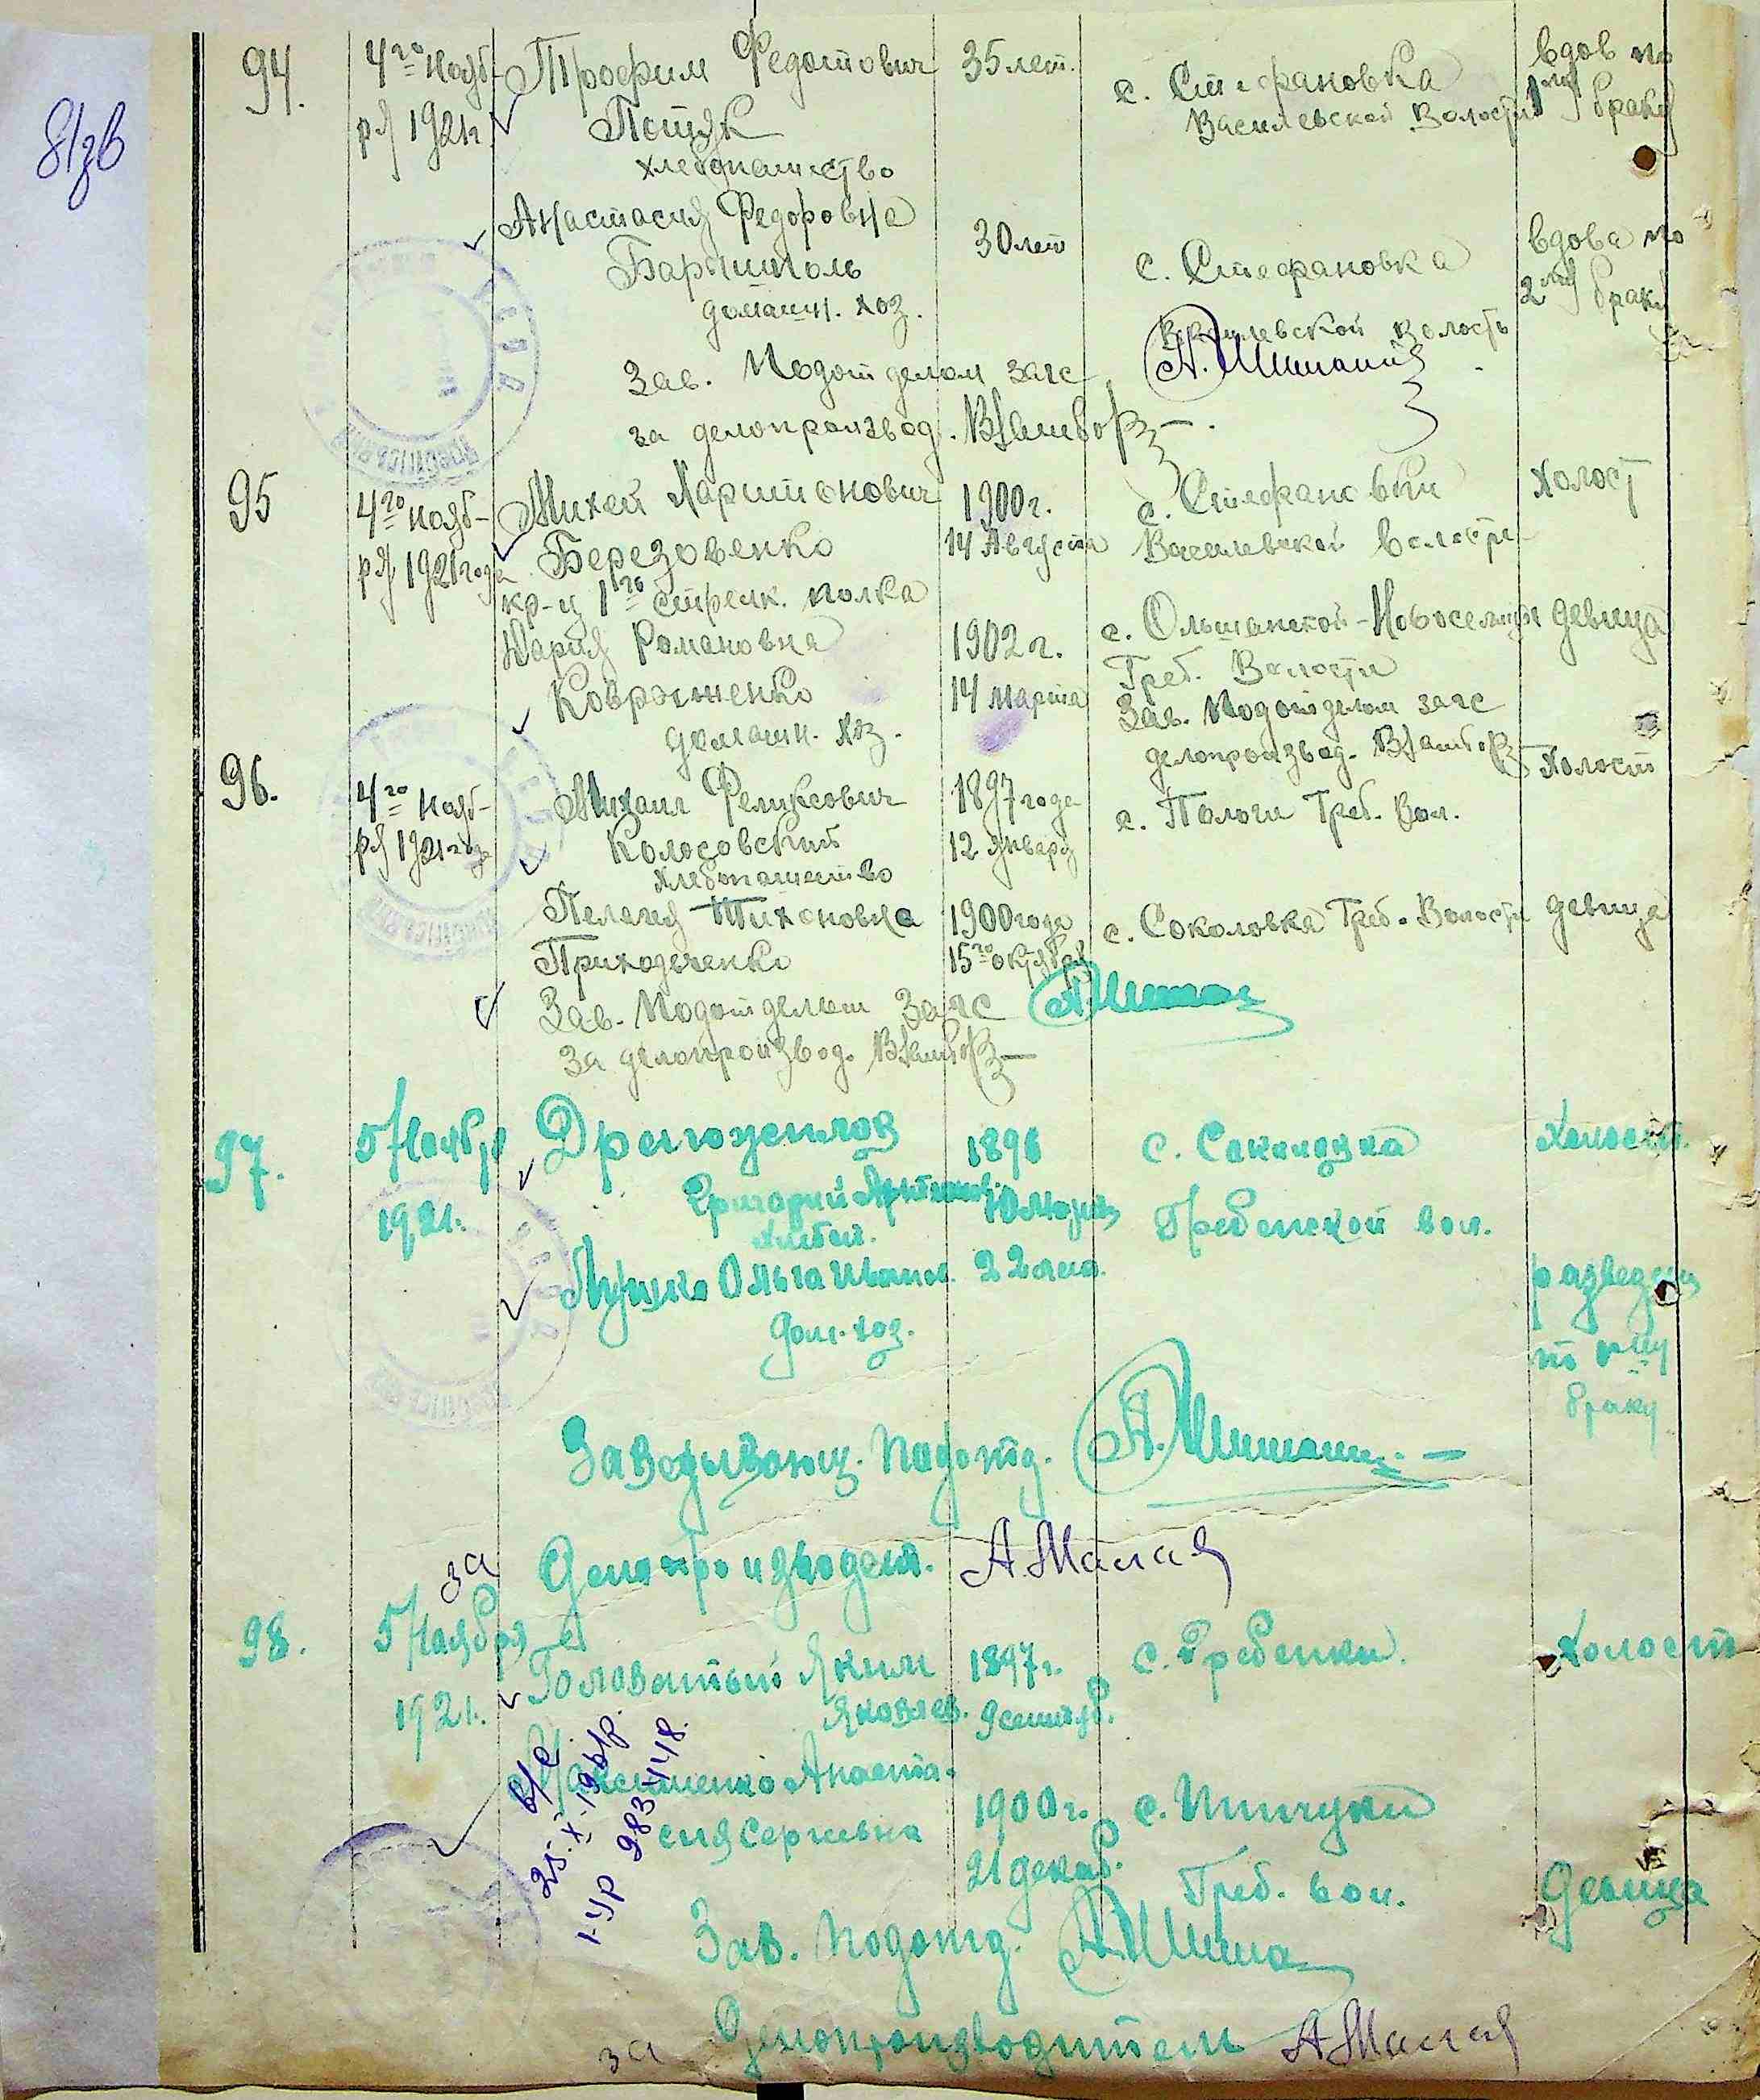 81зв
94.
4го Нояб-
ря 1921г
Трофим Федотович
Потяк
хлебопашество
35 лет.
с. Стефановка
Василевской Волости
вдов по
1му браку
Анастасия Федоровна
Баришполь
домашн. хоз.
30 лет
с. Стефановка
Василевской волость
вдова по
2му браку
Зав. Подотделом загс
за делопроизвод.
95
4го нояб-
ря 1921 года
Михей Харитонович
Березовенко
кр-ц 1го стрелк. полка
1900г.
14 Августа
с. Стефановки
Василевской волости
холост
Мария Романовна
Коврженко
домашн. хоз.
1902 г.
14 марта
с. Ольшанской-Новоселици
Греб. Волости
девица
Зав. Подотделом загс
делопроизвод.
96.
4го Нояб-
ря 1921 года
Михаил Феликсович
Колосовский
хлебопашество
1897 года
12 января
с. Пологи Греб. Вол.
Холост
Пелагия Тихоновна
Приходченко
1900 года
15го октября
с. Соколовка Греб. Волости
девица
Зав. Подотделом Загс
за делопроизвод.
97.
5 Ноября
1921.
Драгожилов
Григорий
хлебоп.
1896
с. Соколовка
Гребенской вол.
Холост.
Ольга Иванов.
дом. хоз.
22 лет.
разведен
по 1му
браку
Заведывающ. Подотд.
за Делопроизводит. А.Малая
98.
5 Ноября
1921.
Головатый Яким
Яковлев.
1897г.
9 сентяб.
с. Гребенки.
Холост
Максименко Анаста-
сия Сергиевна
1900г.
21 декаб.
с. Пинчуки
Греб. вол.
Девица
1-УР 983448.
Зав. Подотд.
за Делопроизводитель А.Малая